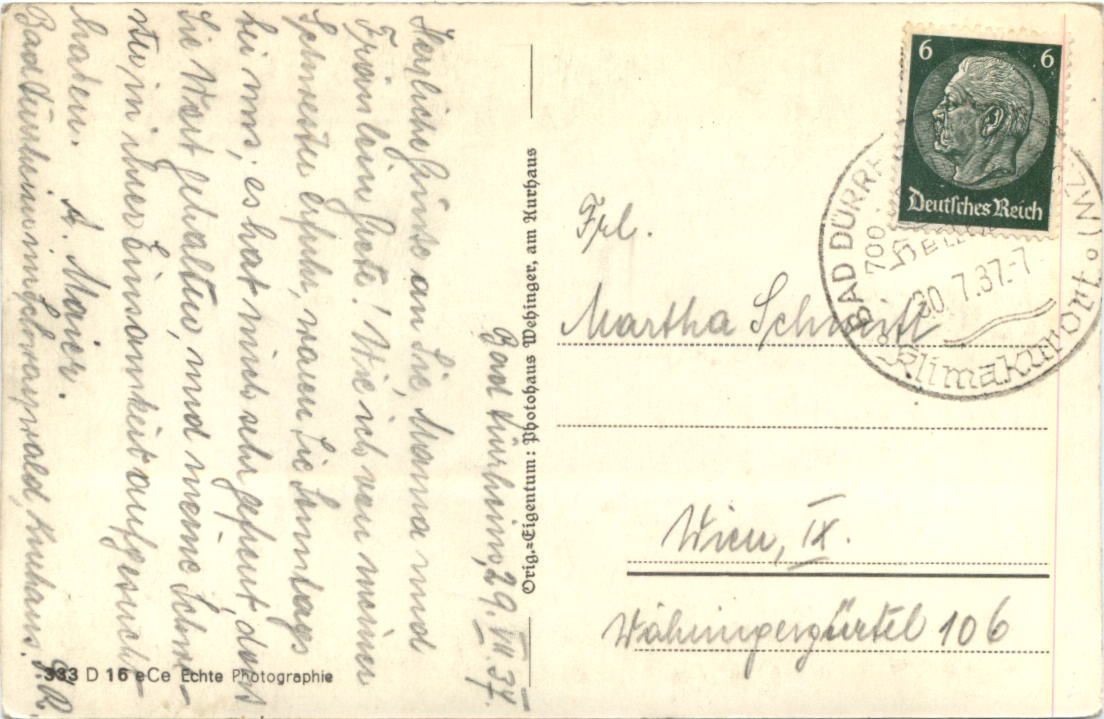 Bad Dürrheim, 29. VII. 37.
Herzliche Grüsse an Sie, Mama und
Fräulein Grete! Wie ich von meiner
Schwester erfuhr, waren Sie Sonntags
bei uns; es hat mich sehr gefreut, dass
Sie Wort gehalten, und meine Schwe-
ster in ihrer Einsamkeit aufgesucht
haben.
A. Maier.
Bad Dürrheim im Schwarzwald, Kurhaus.
333 D 16 eCe Echte Photographie
Orig.=Eigentum: Photohaus Wehinger, am Kurhaus
6 6
Deutsches Reich
BAD DÜRRH
700
30.7.37.-7
Klimakurort
Frl.
Martha Schmitt
Wien, IX.
Währingergürtel 106